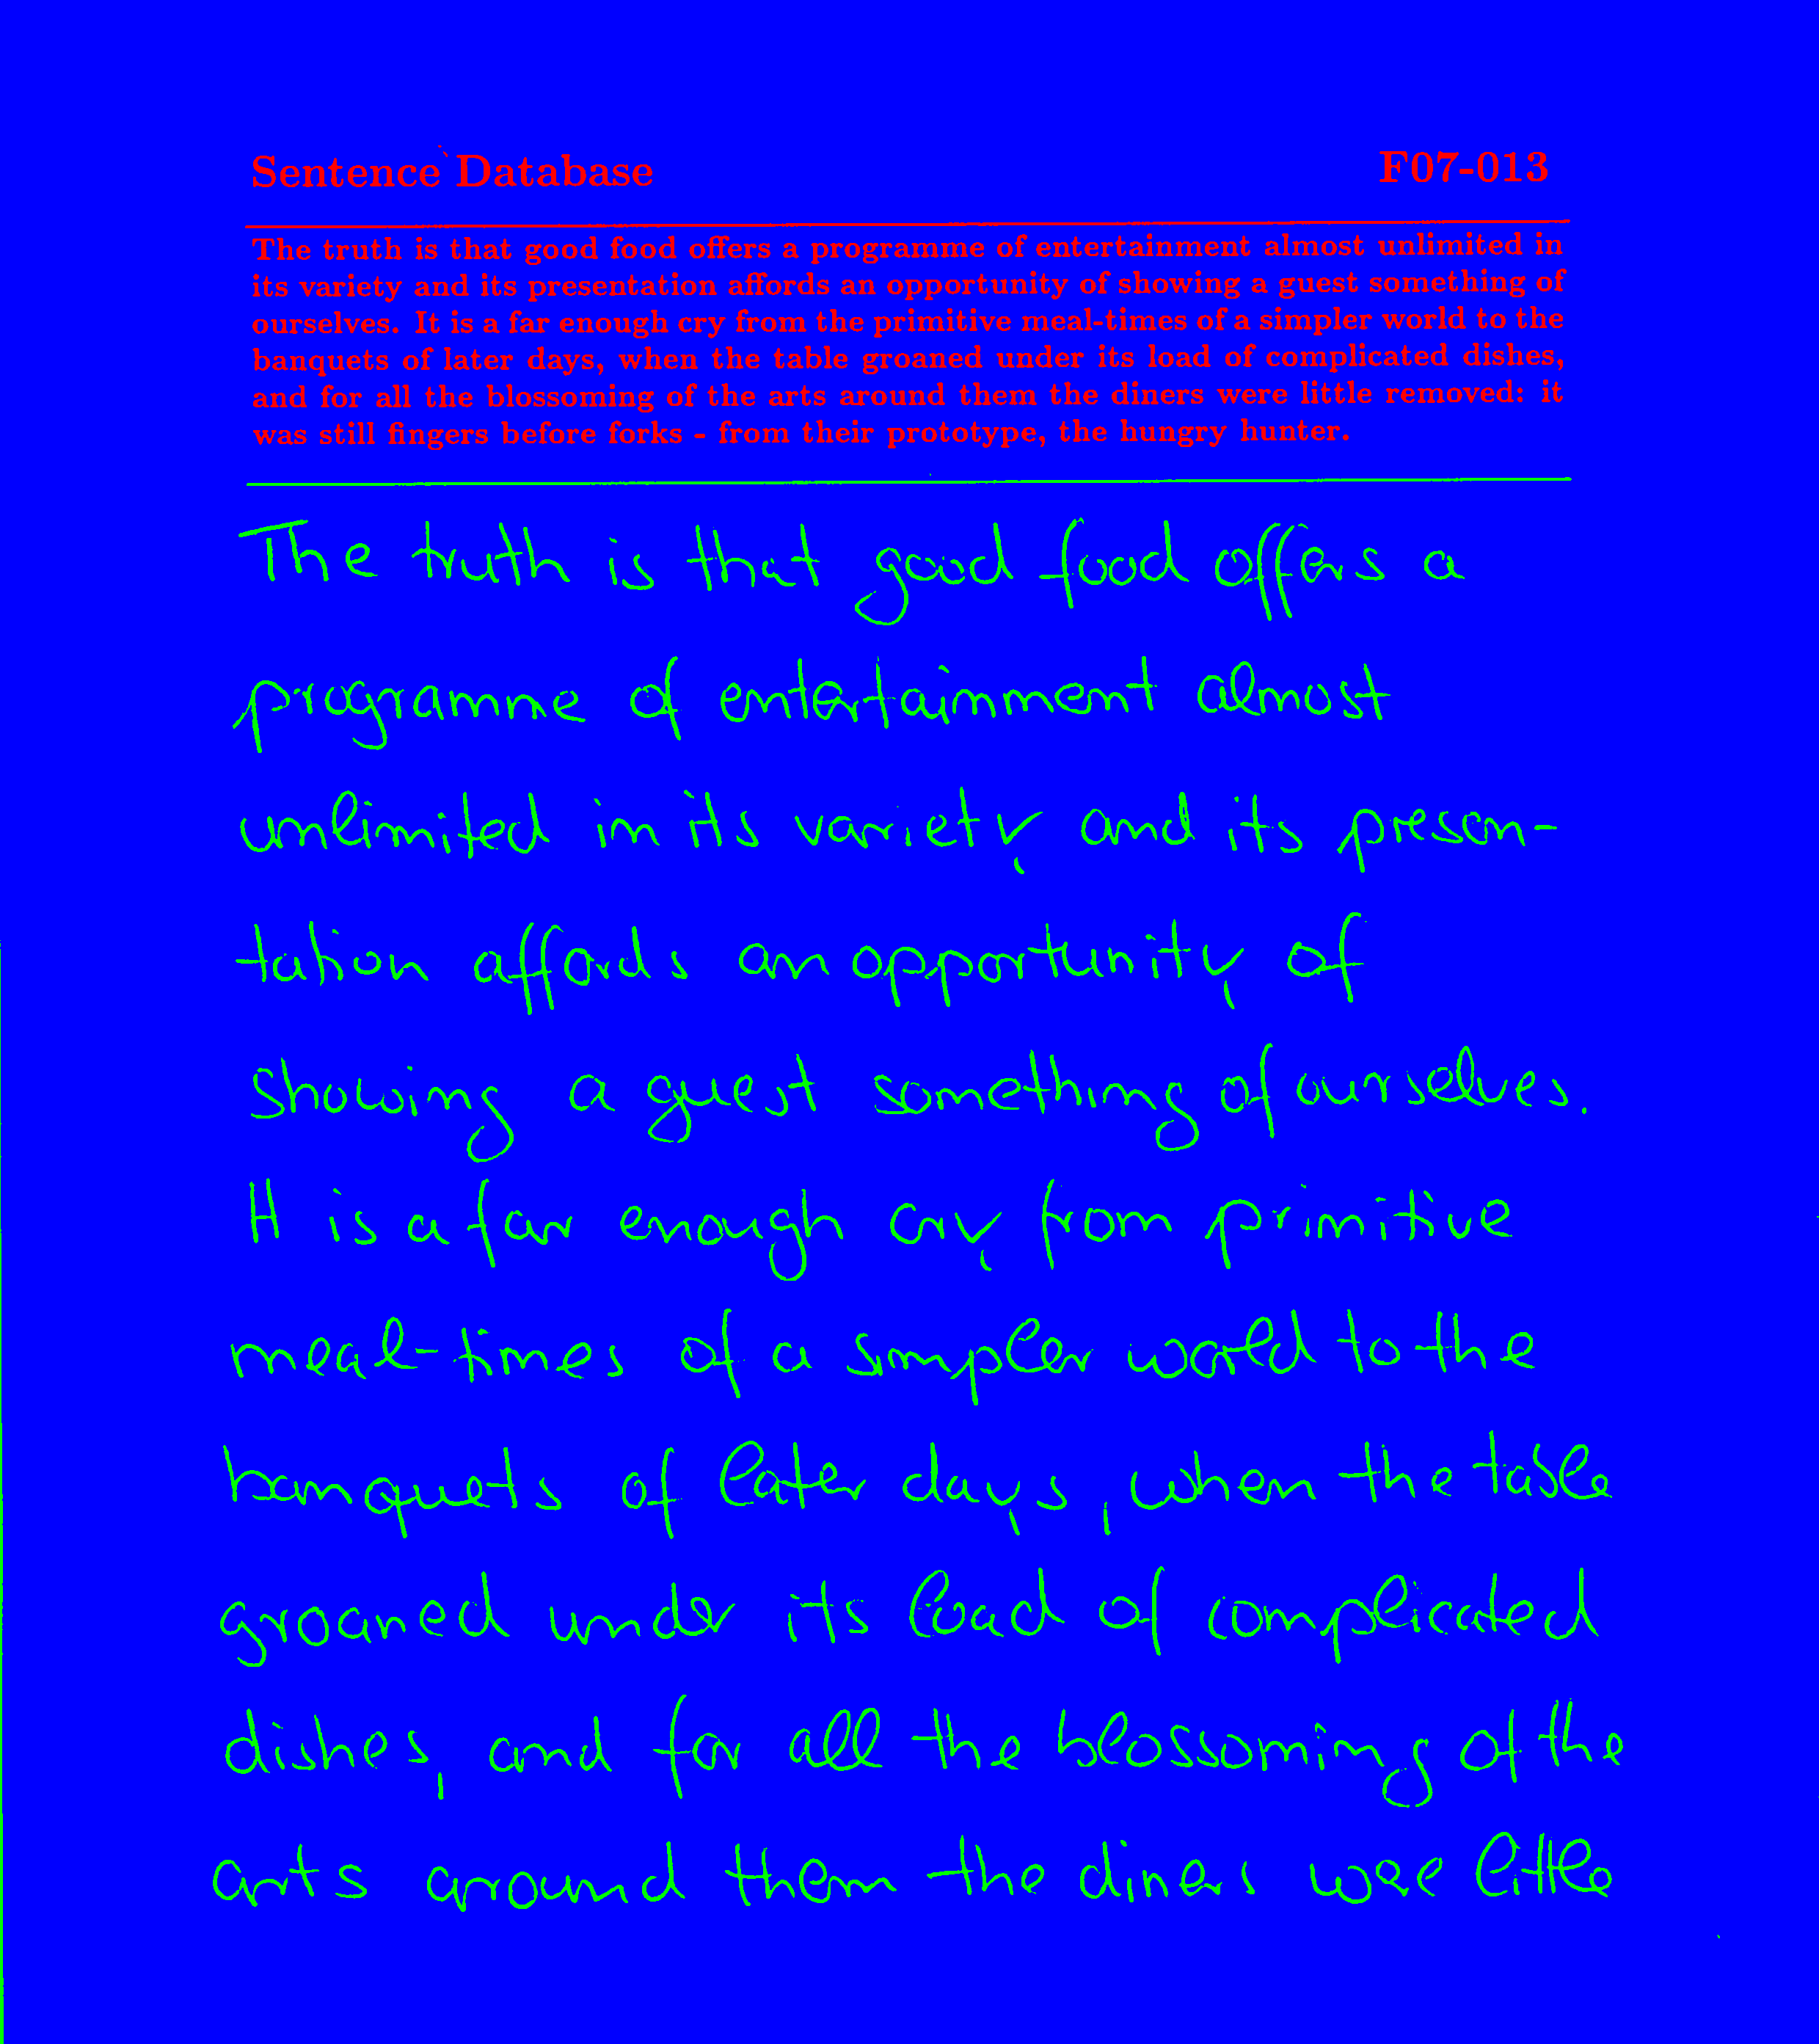 Sentence Database F07-013
The truth is that good food offers a programme of entertainment almost unlimited in
its variety and its presentation affords an opportunity of showing a guest something of
ourselves. It is a far enough cry from the primitive meal-times of a simpler world to the
banquets of later days, when the table groaned under its load of complicated dishes,
and for all the blossoming of the arts around them the diners were little removed: it
was still fingers before forks - from their prototype, the hungry hunter.
The truth is that good food offers a
programme of entertainment almost
unlimited in its variety and its presen-
tation affords an opportunity of
showing a guest something of ourselves.
It is a far enough cry from primitive
meal-times of a simpler world to the
banquets of later days, when the table
groaned under its load of complicated
dishes, and for all the blossoming of the
arts around them the diners were little